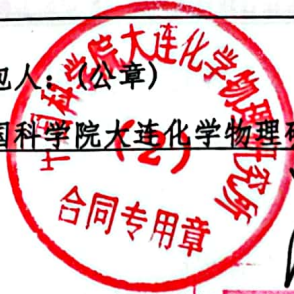 包人：(公章)
国科学院大连化学物理研
中国科学院大连化学物理研究所
(2)
合同专用章